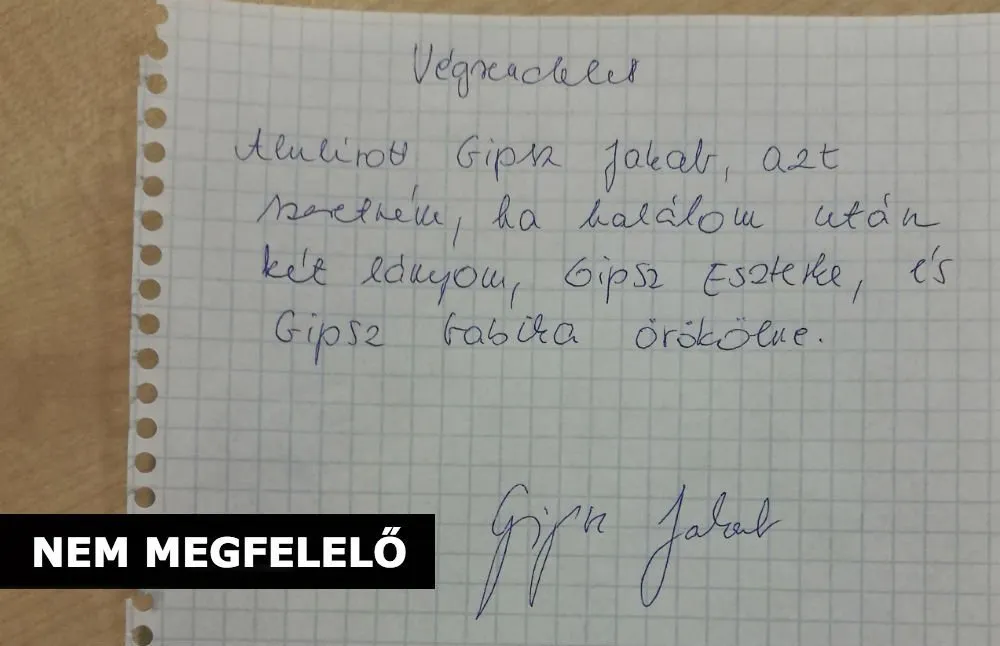 Végrendelet
Alulírott Gipsz Jakab, azt
szeretném, ha halálom után
két lányom, Gipsz Eszterke, és
Gipsz Gabika örökölne.
Gipsz Jakab
NEM MEGFELELŐ